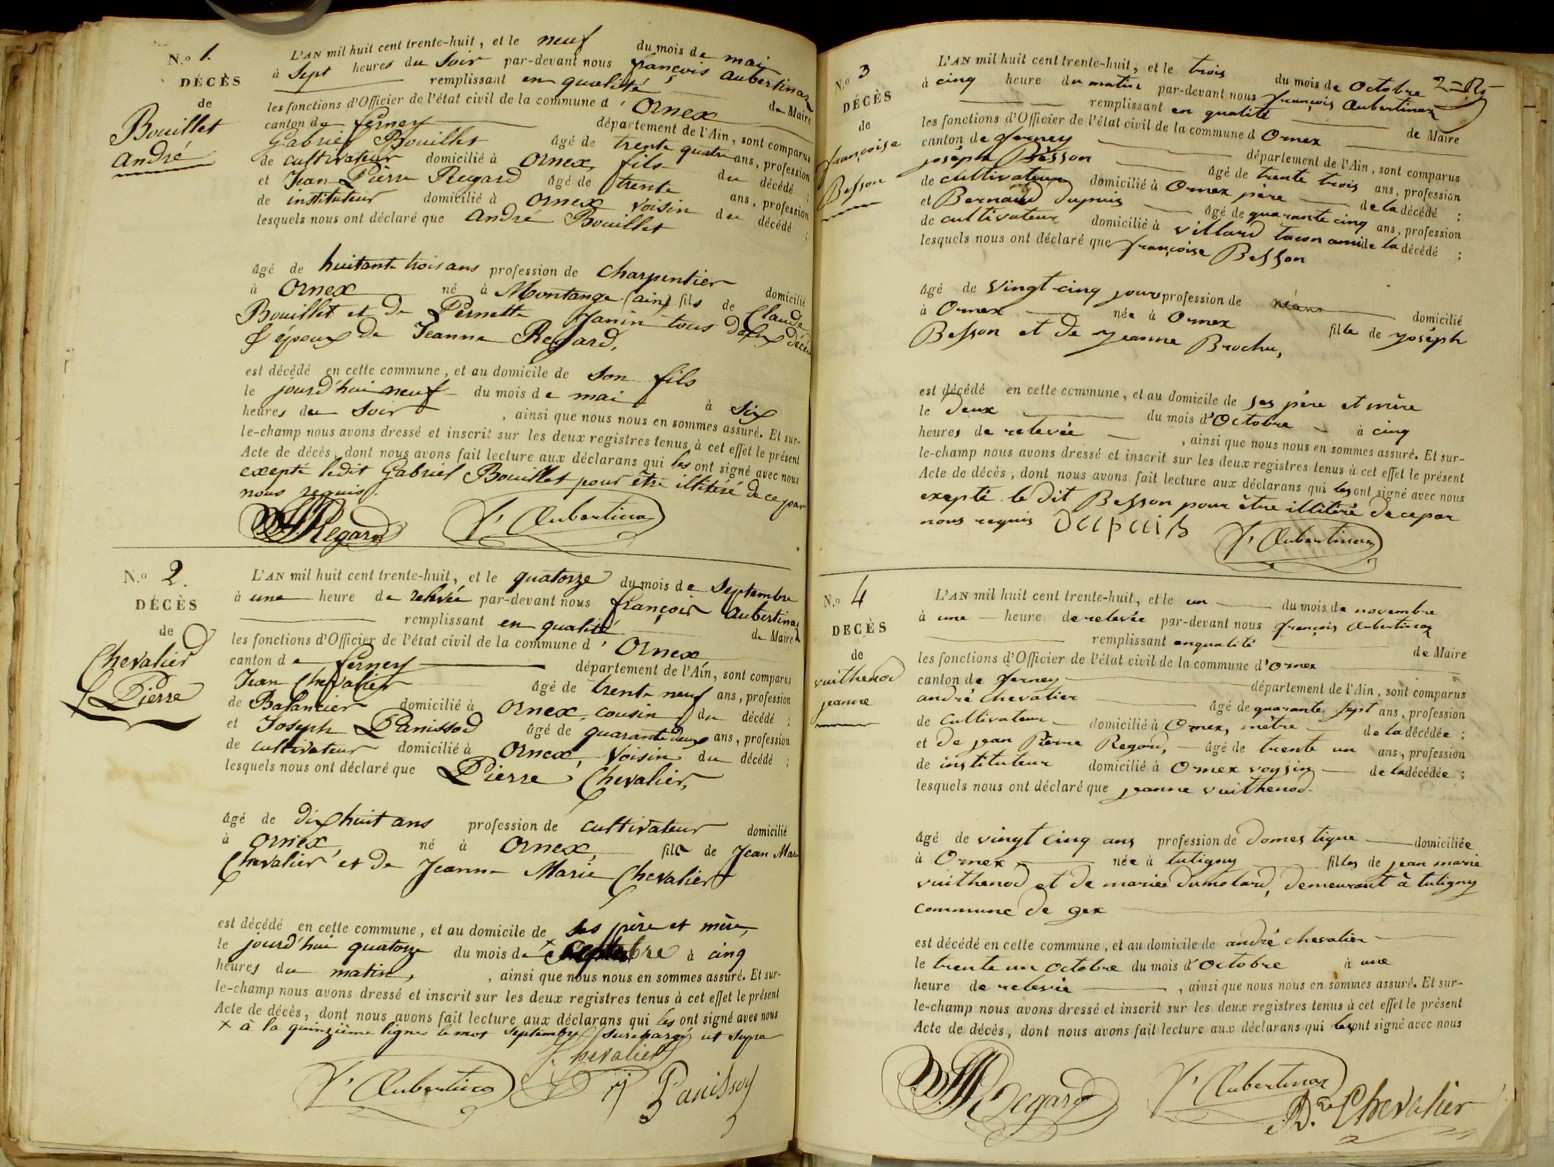 N.o 1.
DÉCÈS
de
Bouillet
André
L'AN mil huit cent trente-huit, et le neuf du mois de mai
à sept heures du soir par-devant nous françois Aubertinaz
remplissant en qualité de Maire
les fonctions d'Officier de l'état civil de la commune d'Ornex
canton de ferney département de l'Ain, sont comparus
Gabriel Bouillet âgé de trente quatre ans, profession
de cultivateur domicilié à Ornex fils du décédé ;
et Jean Pierre Regard âgé de trente ans, profession
de instituteur domicilié à Ornex voisin du décédé ;
lesquels nous ont déclaré que André Bouillet
âgé de huitante trois ans profession de charpentier domicilié
à Ornex né à Montange (ain) fils de Claude
Bouillet et de Pernette Janin tous deux décédés
& époux de Jeanne Regard,
est décédé en cette commune, et au domicile de son fils
le jourd'hui neuf du mois de mai à six
heures du soir , ainsi que nous nous en sommes assuré. Et sur-
le-champ nous avons dressé et inscrit sur les deux registres tenus à cet effet le présent
Acte de décès, dont nous avons fait lecture aux déclarans qui les ont signé avec nous
excepté ledit Gabriel Bouillet pour être illitéré de ce par
nous requis.
Regard F.s Aubertinaz
N.o 2.
DÉCÈS
de
Chevalier
Pierre
L'AN mil huit cent trente-huit, et le quatorze du mois de Septembre
à une heure de relevée par-devant nous françois Aubertinaz
remplissant en qualité de Maire
les fonctions d'Officier de l'état civil de la commune d'Ornex
canton de ferney département de l'Ain, sont comparus
Jean Chevalier âgé de trente neuf ans, profession
de Balancier domicilié à Ornex, cousin du décédé ;
et Joseph Panissod âgé de quarante deux ans, profession
de cultivateur domicilié à Ornex, voisin du décédé ;
lesquels nous ont déclaré que Pierre Chevalier,
âgé de dix huit ans profession de cultivateur domicilié
à Ornex, né à Ornex, fils de Jean Marie
Chevalier et de Jeanne Marie Chevalier
est décédé en cette commune, et au domicile de ses père et mère,
le jourd'hui quatorze du mois de × Septembre à cinq
heures du matin, , ainsi que nous nous en sommes assuré. Et sur-
le-champ nous avons dressé et inscrit sur les deux registres tenus à cet effet le présent
Acte de décès, dont nous avons fait lecture aux déclarans qui les ont signé avec nous
× à la quinzième ligne le mot Septembre surchargé ut supra
Chevalier
F.s Aubertinaz J Panissod
2
N.o 3
DÉCÈS
de
françoise
Besson
L'AN mil huit cent trente-huit, et le trois du mois de Octobre
à cinq heure du matin par-devant nous françois Aubertinaz
remplissant en qualité de Maire
les fonctions d'Officier de l'état civil de la commune d Ornex
canton de ferney département de l'Ain, sont comparus
joséph Bésson âgé de trente trois ans, profession
de cultivateur domicilié à Ornex père de la décédé ;
et Bernard Dupuis âgé de quarante cinq ans, profession
de cultivateur domicilié à villard tacon ami de la décédé ;
lesquels nous ont déclaré que françoise Besson
âgé de vingt-cinq jours profession de néant domicilié
à Ornex née à Ornex fille de joséph
Besson et de jeanne Brochu,
est décédé en cette commune, et au domicile de ses père et mère
le deux du mois d'Octobre à cinq
heures de relevée , ainsi que nous nous en sommes assuré. Et sur-
le-champ nous avons dressé et inscrit sur les deux registres tenus à cet effet le présent
Acte de décès, dont nous avons fait lecture aux déclarans qui les ont signé avec nous
excepté le dit Besson pour être illitéré de ce par
nous requis Dupuis
F.s Aubertinaz
N.o 4
DÉCÈS
de
vuithenod
jeanne
L'AN mil huit cent trente-huit, et le un du mois de novembre
à une heure de relevée par-devant nous françois Aubertinaz
remplissant en qualité de Maire
les fonctions d'Officier de l'état civil de la commune d'Ornex
canton de ferney département de l'Ain, sont comparus
andré chevalier âgé de quarante sept ans, profession
de cultivateur domicilié à Ornex, mètre de la décédée ;
et de jean Pierre Regard, âgé de trente un ans, profession
de instituteur domicilié à Ornex voysin de la décédée ;
lesquels nous ont déclaré que jeanne vuithenod.
âgé de vingt cinq ans profession de domestique domiciliée
à Ornex née à tutigny filles de jean marie
vuithenod et de mariee dumolard, demeurant à tutigny
commune de gex
est décédé en cette commune, et au domicile de andré chevalier
le trente un octobre du mois d'Octobre à une
heure de relevée , ainsi que nous nous en sommes assuré. Et sur-
le-champ nous avons dressé et inscrit sur les deux registres tenus à cet effet le présent
Acte de décès, dont nous avons fait lecture aux déclarans qui les ont signé avec nous
Regard F.s Aubertinaz
A.dré Chevalier